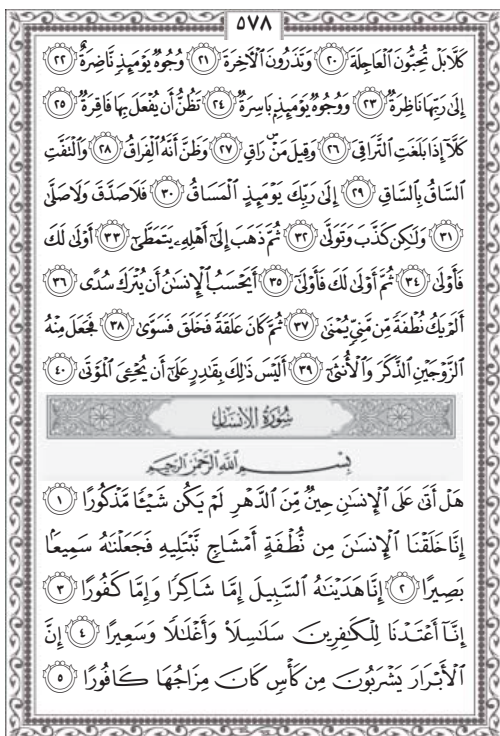 ٥٧٨
كَلَّا بَلْ تُحِبُّونَ ٱلْعَاجِلَةَ ٢٠ وَتَذَرُونَ ٱلْأَخِرَةَ ٢١ وُجُوهٌ يَوْمَئِذٍ نَّاضِرَةٌ ٢٢
إِلَىٰ رَبِّهَا نَاظِرَةٌ ٢٣ وَوُجُوهٌ يَوْمَئِذٍۭ بَاسِرَةٌ ٢٤ تَظُنُّ أَن يُفْعَلَ بِهَا فَاقِرَةٌ ٢٥
كَلَّآ إِذَا بَلَغَتِ ٱلتَّرَاقِىَ ٢٦ وَقِيلَ مَنْ رَاقٍ ٢٧ وَظَنَّ أَنَّهُ ٱلْفِرَاقُ ٢٨ وَٱلْتَفَّتِ
ٱلسَّاقُ بِٱلسَّاقِ ٢٩ إِلَىٰ رَبِّكَ يَوْمَئِذٍ ٱلْمَسَاقُ ٣٠ فَلَا صَدَّقَ وَلَا صَلَّىٰ
٣١ وَلَٰكِن كَذَّبَ وَتَوَلَّىٰ ٣٢ ثُمَّ ذَهَبَ إِلَىٰٓ أَهْلِهِۦ يَتَمَطَّىٰٓ ٣٣ أَوْلَىٰ لَكَ
فَأَوْلَىٰ ٣٤ ثُمَّ أَوْلَىٰ لَكَ فَأَوْلَىٰٓ ٣٥ أَيَحْسَبُ ٱلْإِنسَٰنُ أَن يُتْرَكَ سُدًى ٣٦
أَلَمْ يَكُ نُطْفَةً مِّن مَّنِىٍّ يُمْنَىٰ ٣٧ ثُمَّ كَانَ عَلَقَةً فَخَلَقَ فَسَوَّىٰ ٣٨ فَجَعَلَ مِنْهُ
ٱلزَّوْجَيْنِ ٱلذَّكَرَ وَٱلْأُنثَىٰٓ ٣٩ أَلَيْسَ ذَٰلِكَ بِقَٰدِرٍ عَلَىٰٓ أَن يُحْۦِىَ ٱلْمَوْتَىٰ ٤٠
سُورَةُ الإِنسَانِ
بِسْمِ ٱللَّهِ ٱلرَّحْمَٰنِ ٱلرَّحِيمِ
هَلْ أَتَىٰ عَلَى ٱلْإِنسَٰنِ حِينٌ مِّنَ ٱلدَّهْرِ لَمْ يَكُن شَيْـًٔا مَّذْكُورًا ١
إِنَّا خَلَقْنَا ٱلْإِنسَٰنَ مِن نُّطْفَةٍ أَمْشَاجٍ نَّبْتَلِيهِ فَجَعَلْنَٰهُ سَمِيعًۢا
بَصِيرًا ٢ إِنَّا هَدَيْنَٰهُ ٱلسَّبِيلَ إِمَّا شَاكِرًا وَإِمَّا كَفُورًا ٣
إِنَّآ أَعْتَدْنَا لِلْكَٰفِرِينَ سَلَٰسِلَا۟ وَأَغْلَٰلًا وَسَعِيرًا ٤ إِنَّ
ٱلْأَبْرَارَ يَشْرَبُونَ مِن كَأْسٍ كَانَ مِزَاجُهَا كَافُورًا ٥